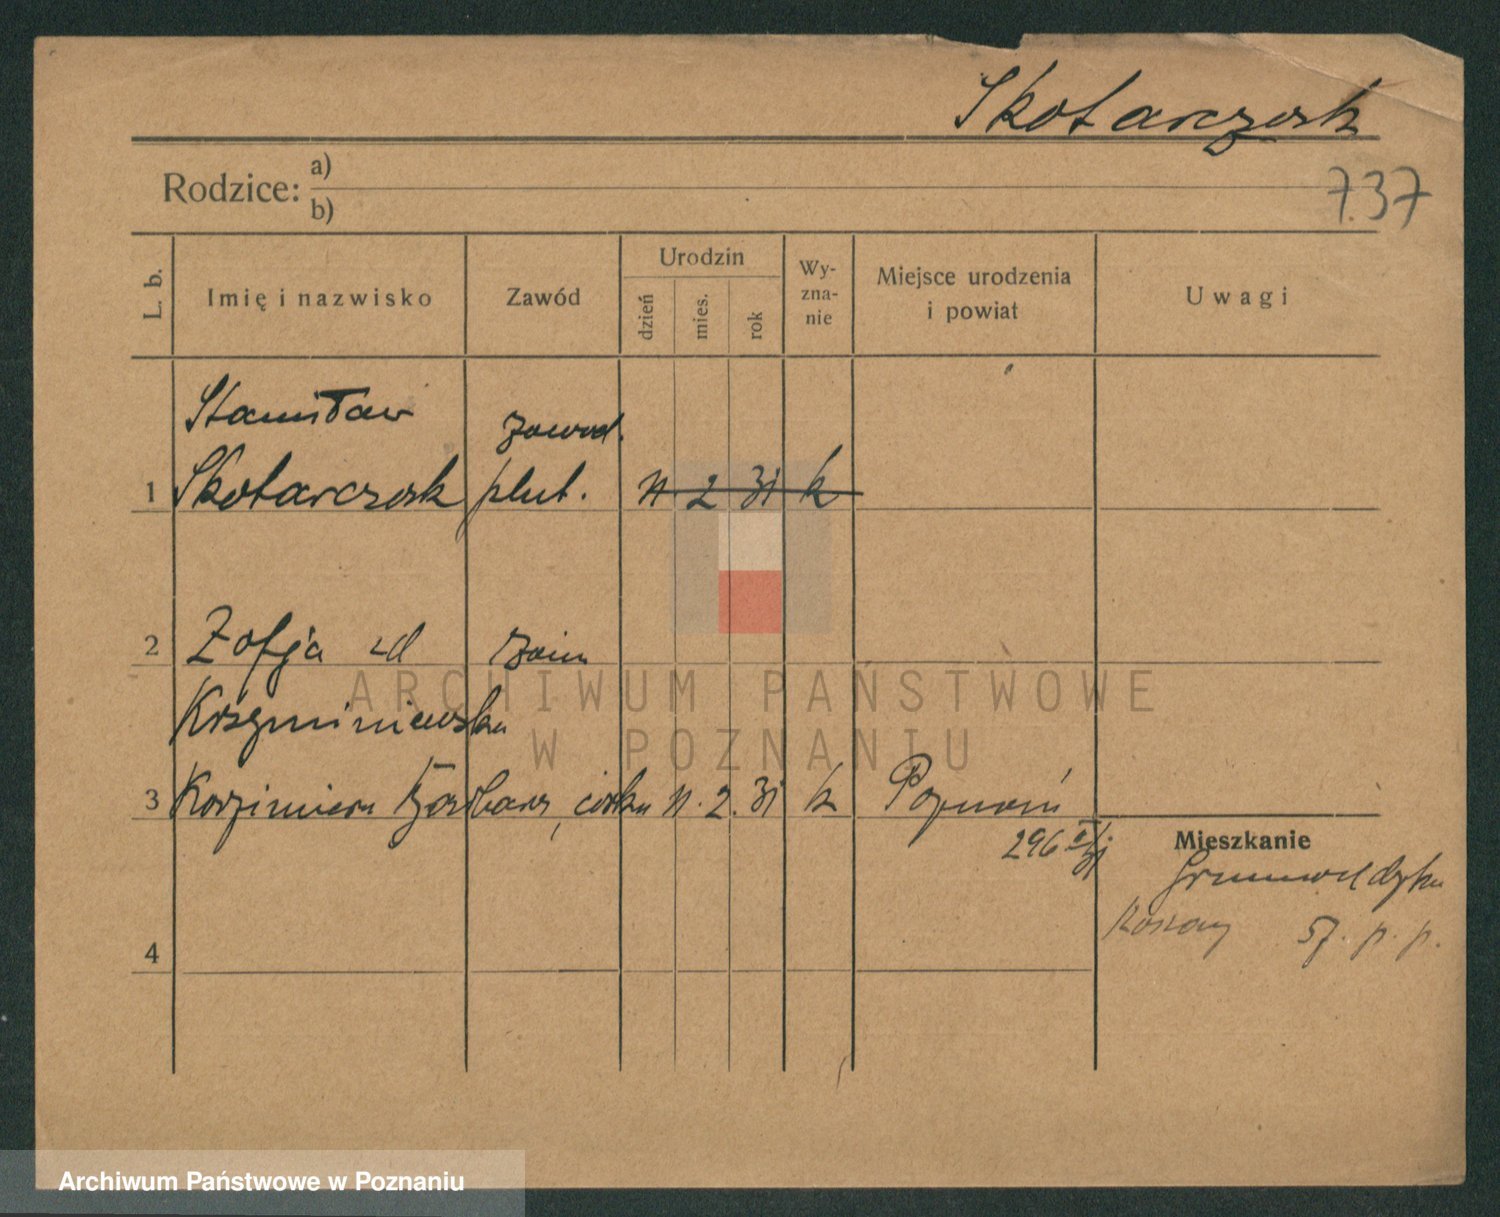 Skotarczak
Rodzice: a)
b)
7.37
L. b. Imię i nazwisko Zawód Urodzin dzień mies. rok Wy-zna-nie Miejsce urodzenia i powiat Uwagi
Stanisław zawod.
1 Skotarczak plut. 11. 2 31 k
2 Zofja zd
3 Kazimiera Barbara, córka 11. 2. 31 k Poznań
296
Mieszkanie
Grunwaldzka
Koszary 57. p. p.
4
ARCHIWUM PAŃSTWOWE
W POZNANIU
Archiwum Państwowe w Poznaniu